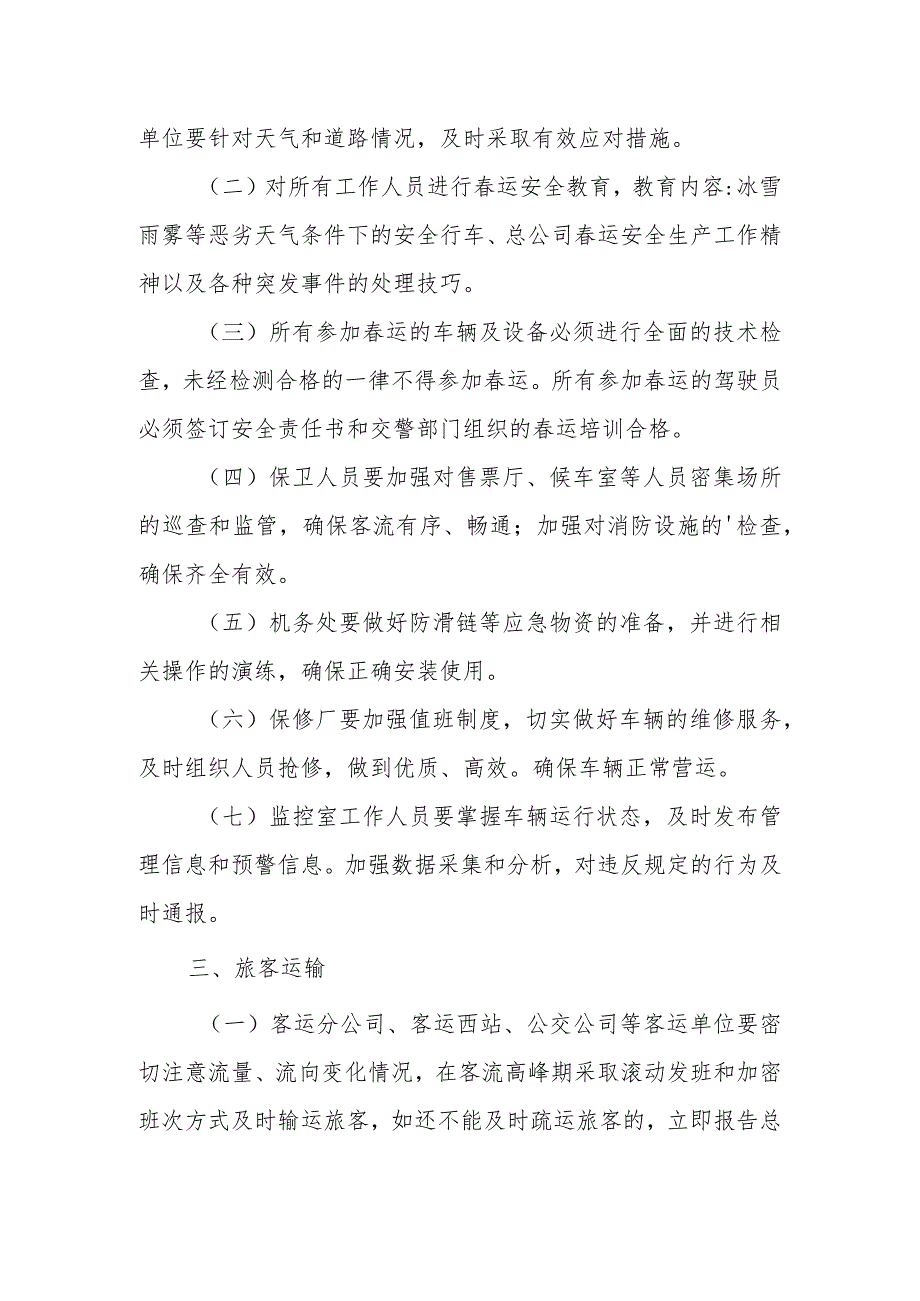 单位要针对天气和道路情况，及时采取有效应对措施。
（二）对所有工作人员进行春运安全教育，教育内容:冰雪
雨雾等恶劣天气条件下的安全行车、总公司春运安全生产工作精
神以及各种突发事件的处理技巧。
（三）所有参加春运的车辆及设备必须进行全面的技术检
查，未经检测合格的一律不得参加春运。所有参加春运的驾驶员
必须签订安全责任书和交警部门组织的春运培训合格。
（四）保卫人员要加强对售票厅、候车室等人员密集场所
的巡查和监管，确保客流有序、畅通；加强对消防设施的'检查，
确保齐全有效。
（五）机务处要做好防滑链等应急物资的准备，并进行相
关操作的演练，确保正确安装使用。
（六）保修厂要加强值班制度，切实做好车辆的维修服务，
及时组织人员抢修，做到优质、高效。确保车辆正常营运。
（七）监控室工作人员要掌握车辆运行状态，及时发布管
理信息和预警信息。加强数据采集和分析，对违反规定的行为及
时通报。
三、旅客运输
（一）客运分公司、客运西站、公交公司等客运单位要密
切注意流量、流向变化情况，在客流高峰期采取滚动发班和加密
班次方式及时输运旅客，如还不能及时疏运旅客的，立即报告总